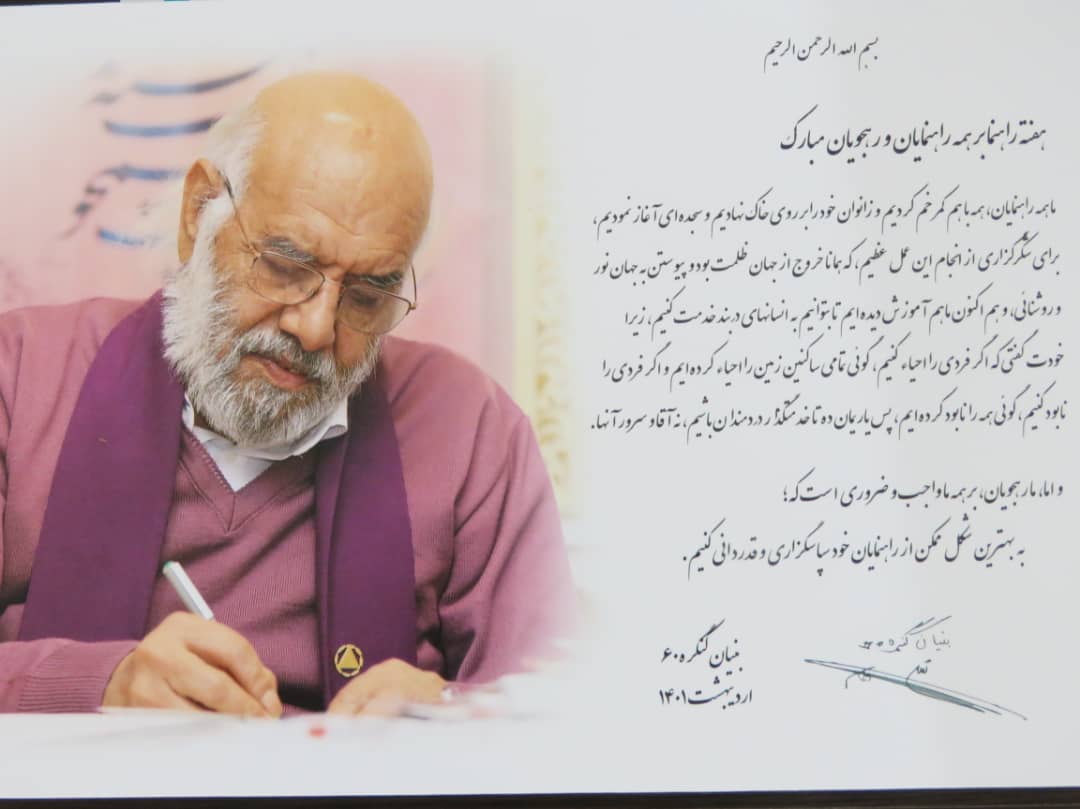 بسم الله الرحمن الرحیم
هفته راهنما بر همه راهنمایان و رهجویان مبارک
ما همه راهنمایان، همه با هم کمر خم کردیم و زانوان خود را بر روی خاک نهادیم و سجده ای آغاز نمودیم،
برای شکرگزاری از انجام این عمل عظیم، که همانا خروج از جهان ظلمت بود و پیوستن به جهان نور
و روشنائی، و هم اکنون ما هم آموزش دیده ایم تا بتوانیم به انسانهای در بند خدمت کنیم، زیرا
خودت گفتی که اگر فردی را احیاء کنیم، گوئی تمامی ساکنین زمین را احیاء کرده ایم و اگر فردی را
نابود کنیم، گوئی همه را نابود کرده ایم، پس یاریمان ده تا خدمتگذار دردمندان باشیم، نه آقا و سرور آنها.
و اما، ما رهجویان، بر همه ما واجب و ضروری است که؛
به بهترین شکل ممکن از راهنمایان خود سپاسگزاری و قدردانی کنیم.
بنیان کنگره ۶۰
بنیان کنگره ۶۰
اردیبهشت ۱۴۰۱